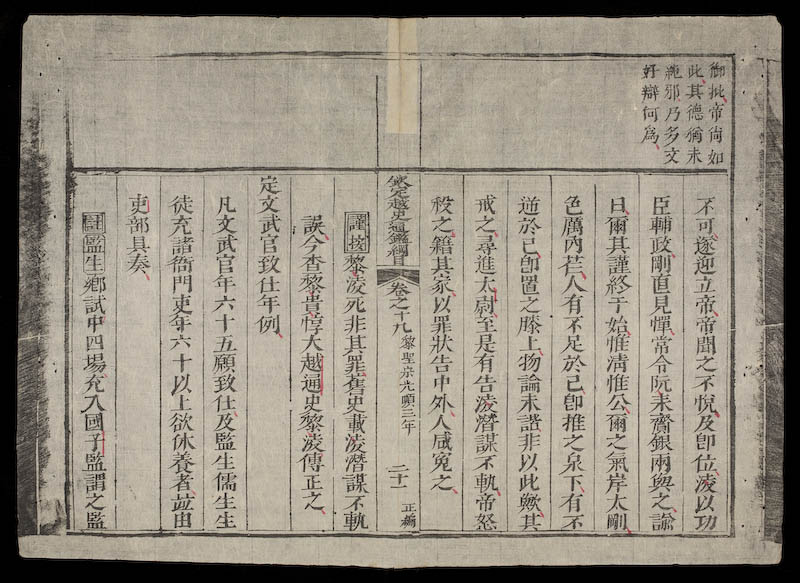 御批帝尙如
此其德猶未
純邪乃多文
好辯何爲
不可遂迎立帝帝聞之不悅及卽位淩以功
臣輔政剛直見憚常令阮耒齎銀兩與之諭
曰爾其謹終于始惟淸惟公爾之氣岸太剛
色厲內荏人有不足於己卽推之泉下有不
逆於己卽置之膝上物論未諧非以此歟其
戒之尋進太尉至是有告淩潛謀不軌帝怒
殺之籍其家以罪狀告中外人咸寃之
欽定越史通鑑綱目 卷之十九 黎聖宗光順三年 二十一 正編
謹按黎淩死非其罪舊史載淩潛謀不軌
誤今查黎貴惇大越通史黎淩傳正之
定文武官致仕年例
凡文武官年六十五願致仕及監生儒生生
徒充諸衙門吏年六十以上欲休養者並由
吏部具奏
註監生鄉試中四場充入國子監謂之監